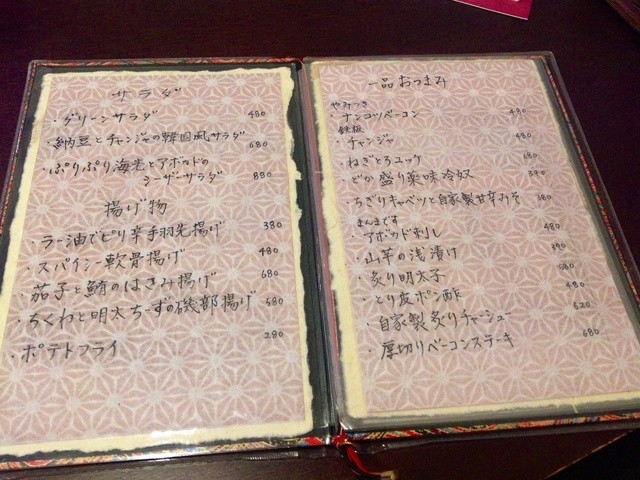 サラダ
・グリーンサラダ 480
・納豆とチャンジャの韓国風サラダ 680
・ぷりぷり海老とアボカドの
シーザーサラダ 880
揚げ物
・ラー油でピリ辛手羽先揚げ 380
・スパイシー軟骨揚げ 480
・茄子と鮪のはさみ揚げ 680
・ちくわと明太ちーずの磯部揚げ 580
・ポテトフライ 280
一品おつまみ
やみつき
・ナンコツベーコン 490
鉄板
・チャンジャ 480
・ねぎとろユッケ 680
・どか盛り薬味冷奴 390
・ちぎりキャベツと自家製甘辛みそ 380
まんまです
・アボカド刺し 480
・山芋の浅漬け 390
・炙り明太子 480
・とり皮ポン酢
・自家製炙りチャーシュー 520
・厚切りベーコンステーキ 680